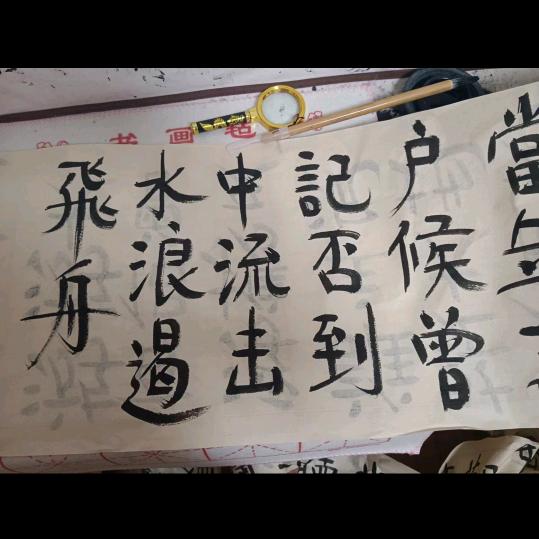 當年
户候曾
記否到
中流击
水浪遏
飛舟